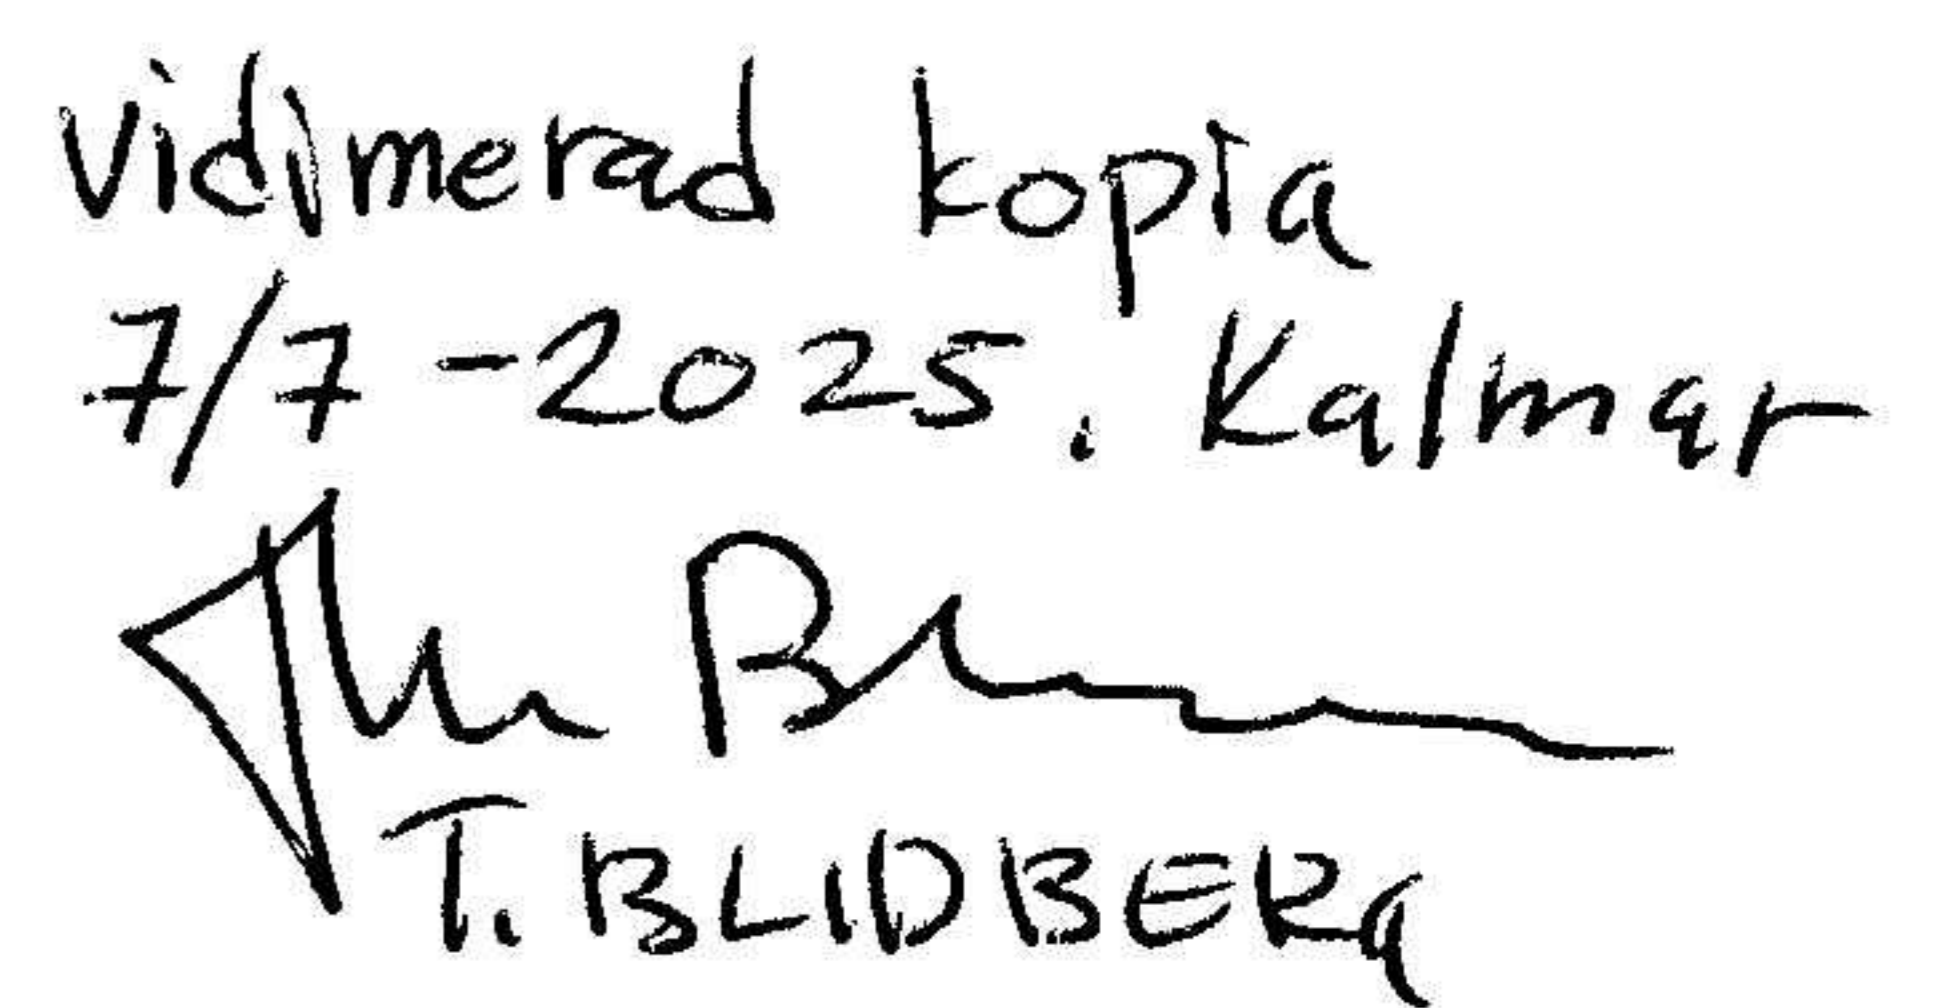 vidimerad kopia
7/7 -2025. Kalmar
T. BLIDBERG